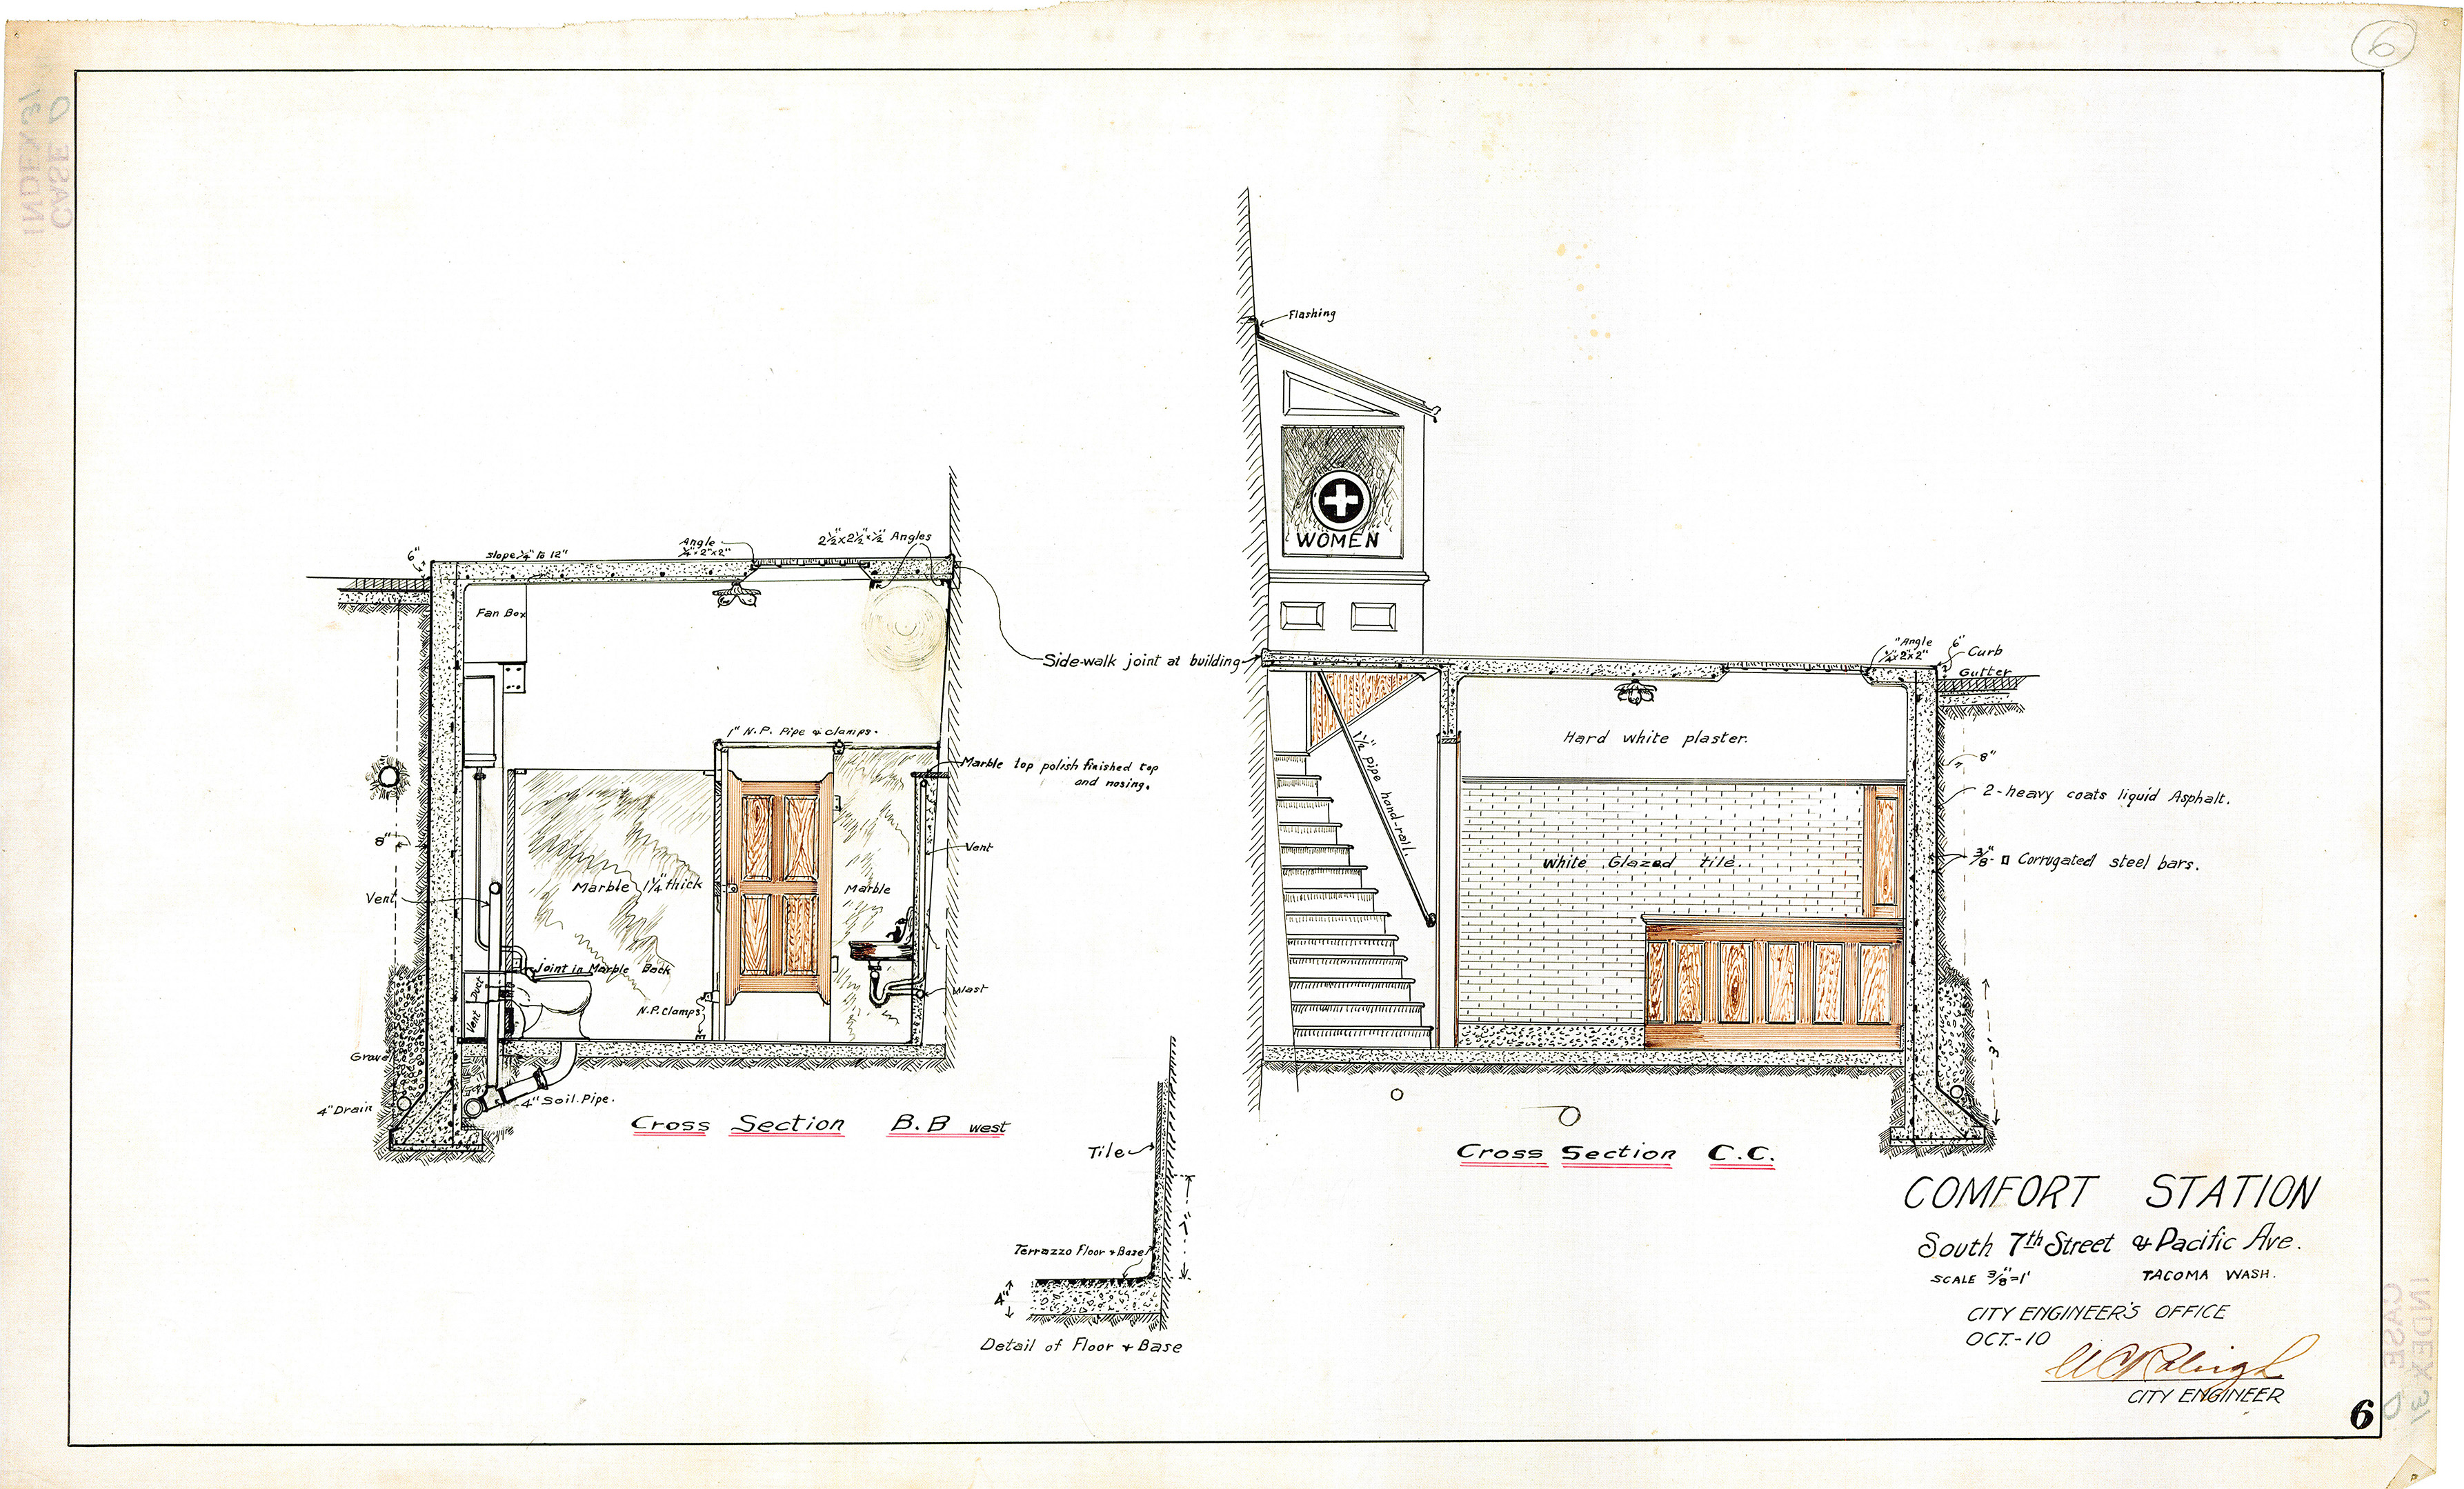 6
INDEX 31
CASE D
Flashing
WOMEN
6"
slope ¼" to 12"
Angle
¼" 2" x 2"
2½" x 2½" x ½" Angles
Fan Box
Side-walk joint at building
1" N.P. Pipe & clamps.
Marble top polish finished top
and nosing.
8"
Vent
Marble 1¼" thick
Marble
Vent
Joint in Marble Back
N.P. Clamps
Wast
Vent Duct
Gravel
4" Drain
4" Soil Pipe.
Cross Section B.B west
Angle
¼" 2" x 2"
6"
Curb
Gutter
Hard white plaster.
1½" pipe hand-rail.
8"
2-heavy coats liquid Asphalt.
White Glazed tile.
3/8" Corrugated steel bars.
3'
Cross Section C.C.
Tile
7"
Terrazzo Floor & Base
4"
Detail of Floor & Base
COMFORT STATION
South 7th Street & Pacific Ave.
SCALE 3/8"=1' TACOMA WASH.
CITY ENGINEER'S OFFICE
OCT.-10
W C Raleigh
CITY ENGINEER
6
INDEX 31
CASE D